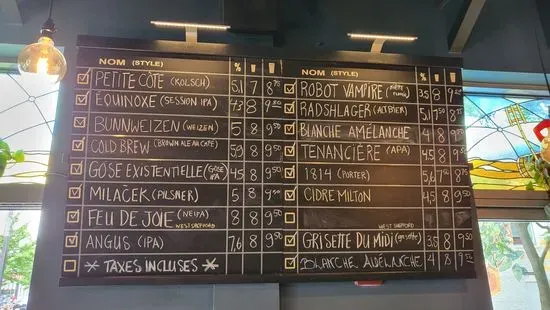 NOM (STYLE) %
PETITE CÔTE (KOLSCH) 5,1 7 8 75
EQUINOXE (SESSION IPA) 4,8 8 9 50
BUNNWEIZEN (WEIZEN) 5 8 9 50
COLD BREW (BROWN ALE AU CAFÉ) 5,9 8 9 50
GOSE EXISTENTIELLE (GOSE IPA) 4,5 8 9 50
MILAČEK (PILSNER) 5 8 9 50
FEU DE JOIE (NEIPA) 8 8 9 50
WEST SHEFFORD
ANGUS (IPA) 7,6 8 9 50
* TAXES INCLUSES *
NOM (STYLE) %
ROBOT VAMPIRE 3,5 8 9
RADSHLAGER (ALTBIER) 5,1 7 50 8
BLANCHE AMÉLANCHE 4 8 9
TENANCIÈRE (APA) 4,5 8 9 50
1814 (PORTER) 5,6 8 75
CIDRE MILTON 4,5 8 9 50
WEST SHEFFORD
GRISETTE DU MIDI (grisette) 3,5 8 9 50
BLANCHE AMÉLANCHE 4 8 9 50